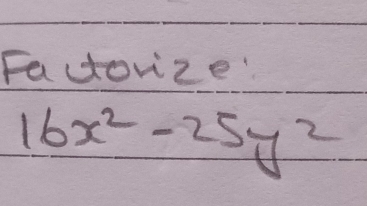 Factorize:
16x² - 25y²